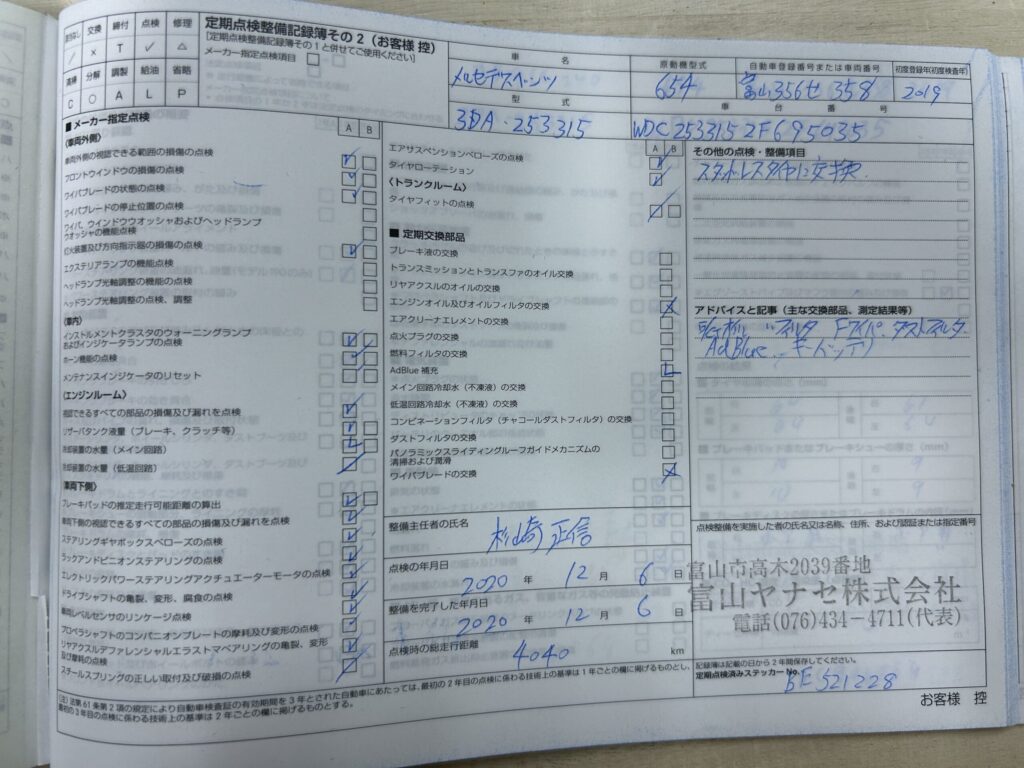 点検なし 交換 締付 点検 修理
/ × T ✓ △
清掃 分解 調製 給油 省略
C ○ A L P
定期点検整備記録簿その2（お客様 控）
[定期点検整備記録簿その1と併せてご使用ください]
メーカー指定点検項目
車名
メルセデスベンツ
原動機型式
654
自動車登録番号または車両番号
富山356せ 358
初度登録年(初度検査年)
2019
型式
3DA-253315
車台番号
WDC2533152F695035
■メーカー指定点検
A B
〈車両外側〉
車両外側の視認できる範囲の損傷の点検
フロントウインドの損傷の点検
ワイパブレードの状態の点検
ワイパブレードの停止位置の点検
ワイパ、ウインドウウオッシャおよびヘッドランプ
ウオッシャの機能点検
灯火装置及び方向指示器の損傷の点検
エクステリアランプの機能点検
ヘッドランプ光軸調整の機能の点検
ヘッドランプ光軸調整の点検、調整
〈車内〉
インストルメントクラスタのウォーニングランプ
およびインジケータランプの点検
ホーン機能の点検
メンテナンスインジケータのリセット
〈エンジンルーム〉
視認できるすべての部品の損傷及び漏れを点検
リザーバタンク液量（ブレーキ、クラッチ等）
冷却装置の水量（メイン回路）
冷却装置の水量（低温回路）
〈車両下側〉
ブレーキパッドの推定走行可能距離の算出
車両下側の視認できるすべての部品の損傷及び漏れを点検
ステアリングギヤボックスベローズの点検
ラックアンドピニオンステアリングの点検
エレクトリックパワーステアリングアクチュエーターモータの点検
ドライブシャフトの亀裂、変形、腐食の点検
車高レベルセンサのリンケージ点検
プロペラシャフトのコンパニオンプレートの摩耗及び変形の点検
リヤアクスルデファレンシャルエラストマベアリングの亀裂、変形
及び摩耗の点検
スチールスプリングの正しい取付及び破損の点検
A B
エアサスペンションベローズの点検
タイヤローテーション
〈トランクルーム〉
タイヤフィットの点検
■定期交換部品
ブレーキ液の交換
トランスミッションとトランスファのオイル交換
リヤアクスルのオイルの交換
エンジンオイル及びオイルフィルタの交換
エアクリーナエレメントの交換
点火プラグの交換
燃料フィルタの交換
AdBlue 補充
メイン回路冷却水（不凍液）の交換
低温回路冷却水（不凍液）の交換
コンビネーションフィルタ（チャコールダストフィルタ）の交換
ダストフィルタの交換
パノラミックスライディングルーフガイドメカニズムの
清掃および潤滑
ワイパブレードの交換
その他の点検・整備項目
スタットレスタイヤに交換
アドバイスと記事（主な交換部品、測定結果等）
フィルタ Fワイパ ダストフィルタ
AdBlue キーバッテリ
整備主任者の氏名
杉崎 正信
点検の年月日
2020 年 12 月 6 日
整備を完了した年月日
2020 年 12 月 6 日
点検時の総走行距離
4040 km
点検整備を実施した者の氏名又は名称、住所、および認証または指定番号
富山市高木2039番地
富山ヤナセ株式会社
電話(076)434−4711(代表)
記録簿は記載の日から2年間保存してください。
定期点検済みステッカー No.
BE521228
（注）法第61条第2項の規定により自動車検査証の有効期間を3年とされた自動車にあたっては、最初の2年目の点検に係わる技術上の基準は1年ごとの欄に掲げるものとし、
最初の3年目の点検に係わる技術上の基準は2年ごとの欄に掲げるものとする。
お客様 控